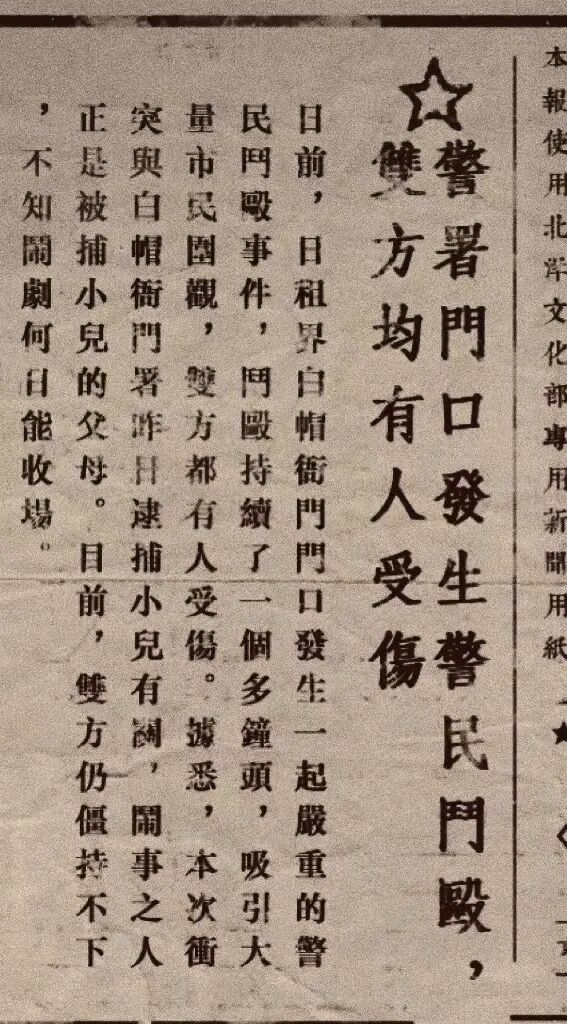 本報使用北洋文化部專用新聞用紙
★
☆警署門口發生警民鬥毆，
雙方均有人受傷
日前，日租界白帽衙門門口發生一起嚴重的警
民鬥毆事件，鬥毆持續了一個多鐘頭，吸引大
量市民圍觀，雙方都有人受傷。據悉，本次衝
突與白帽衙門署昨日逮捕小兒有關，鬧事之人
正是被捕小兒的父母。目前，雙方仍僵持不下
，不知鬧劇何日能收場。